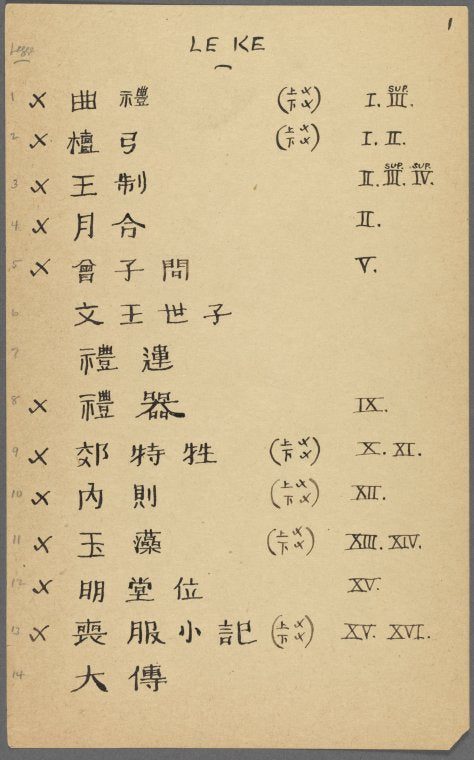 1
LE KE
Legge
1 x 曲禮 (上x 下x) I. SUP. III.
2 x 檀弓 (上x 下x) I. II.
3 x 王制 II. SUP. III. SUP. IV.
4 x 月合 II.
5 x 曾子問 V.
6 文王世子
7 禮連
8 x 禮器 IX.
9 x 郊特牲 (上x 下x) X. XI.
10 x 內則 (上x 下x) XII.
11 x 玉藻 (上x 下x) XIII. XIV.
12 x 明堂位 XV.
13 x 喪服小記 (上x 下x) XV. XVI.
14 大傳